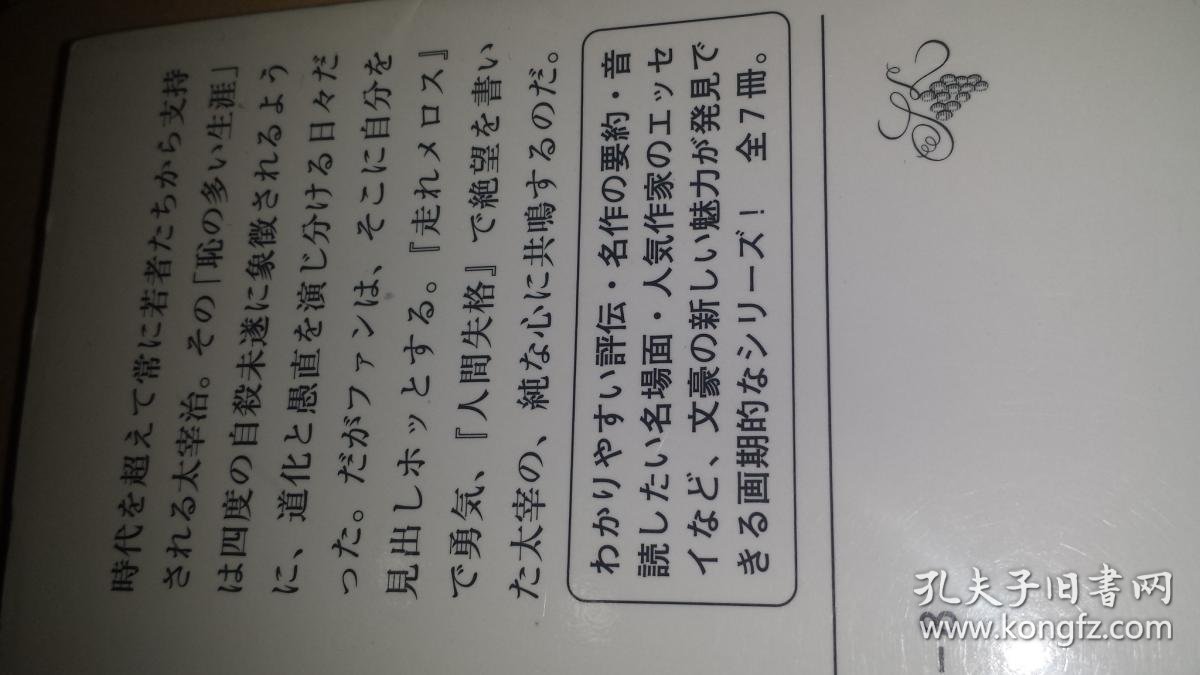 時代を超えて常に若者たちから支持
される太宰治。その「恥の多い生涯」
は四度の自殺未遂に象徴されるよう
に、道化と愚直を演じ分ける日々だ
った。だがファンは、そこに自分を
見出しホッとする。『走れメロス』
で勇気、『人間失格』で絶望を書い
た太宰の、純な心に共鳴するのだ。
わかりやすい評伝・名作の要約・音
読したい名場面・人気作家のエッセ
イなど、文豪の新しい魅力が発見で
きる画期的なシリーズ！　全７冊。
孔夫子旧書网
www.kongfz.com